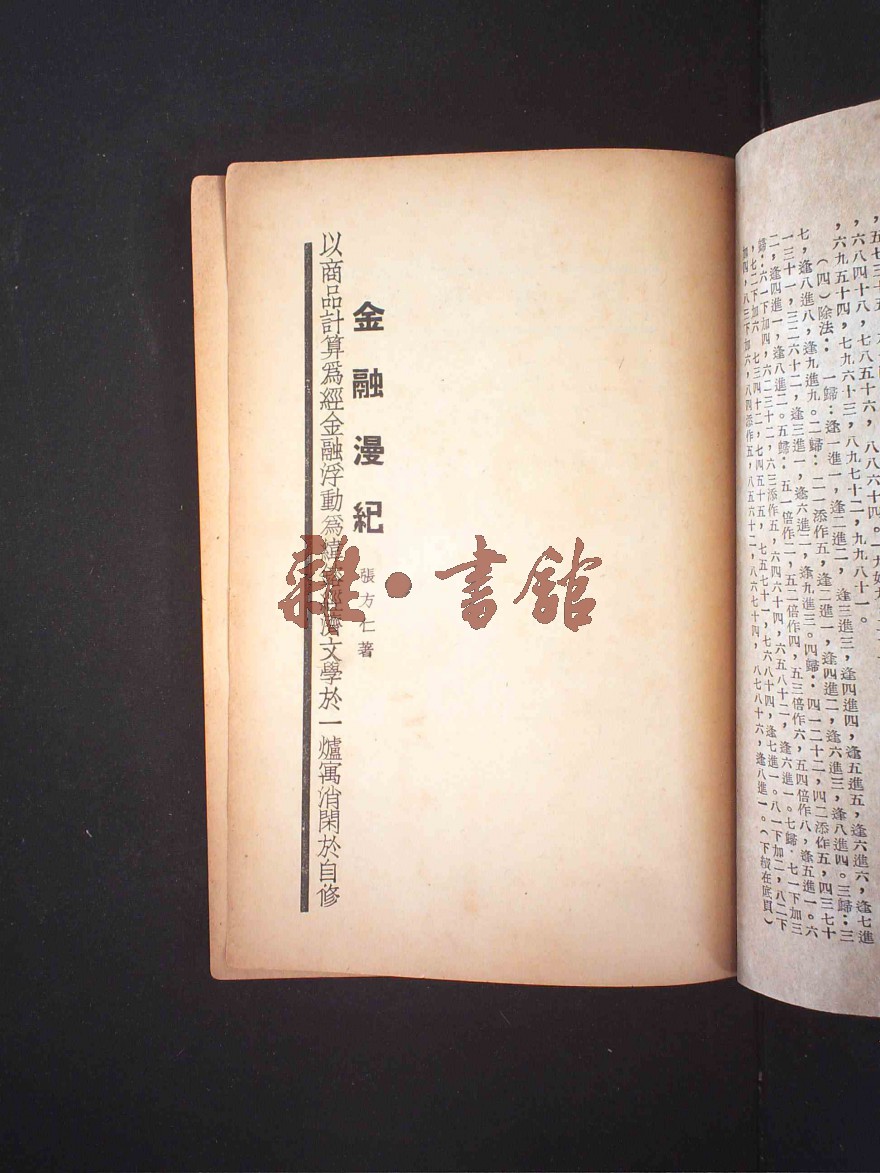 ，六八四十八，七八五十六，八八六十四。一九如九，
，六九五十四，七九六十三，八九七十二，九九八十一。
（四）除法：一歸：逢一進一，逢二進二，逢三進三，逢四進四，逢五進五，逢六進六，逢七進
七，逢八進八，逢九進九。二歸：二一添作五，逢二進一，逢四進二，逢六進三，逢八進四。三歸：三
一三十一，三二六十二，逢三進一，逢六進二，逢九進三。四歸：四一二十二，四二添作五，四三七十
二，逢四進一，逢八進二。五歸：五一倍作二，五二倍作四，五三倍作六，五四倍作八，逢五進一。六
歸：六一下加四，六二三十二，六三添作五，六四六十四，六五八十二，逢六進一。七歸：七一下加三
，七二下加六，七三四十二，七四五十五，七五七十一，七六八十四，逢七進一。八歸：八一下加二，八二下
加四，八三下加六，八四添作五，八五六十二，八六七十四，八七八十六，逢八進一。（下接在底頁）
金融漫紀
張方仁著
以商品計算為經金融浮動為緯 經濟文學於一爐寓消閑於自修
雜·書館